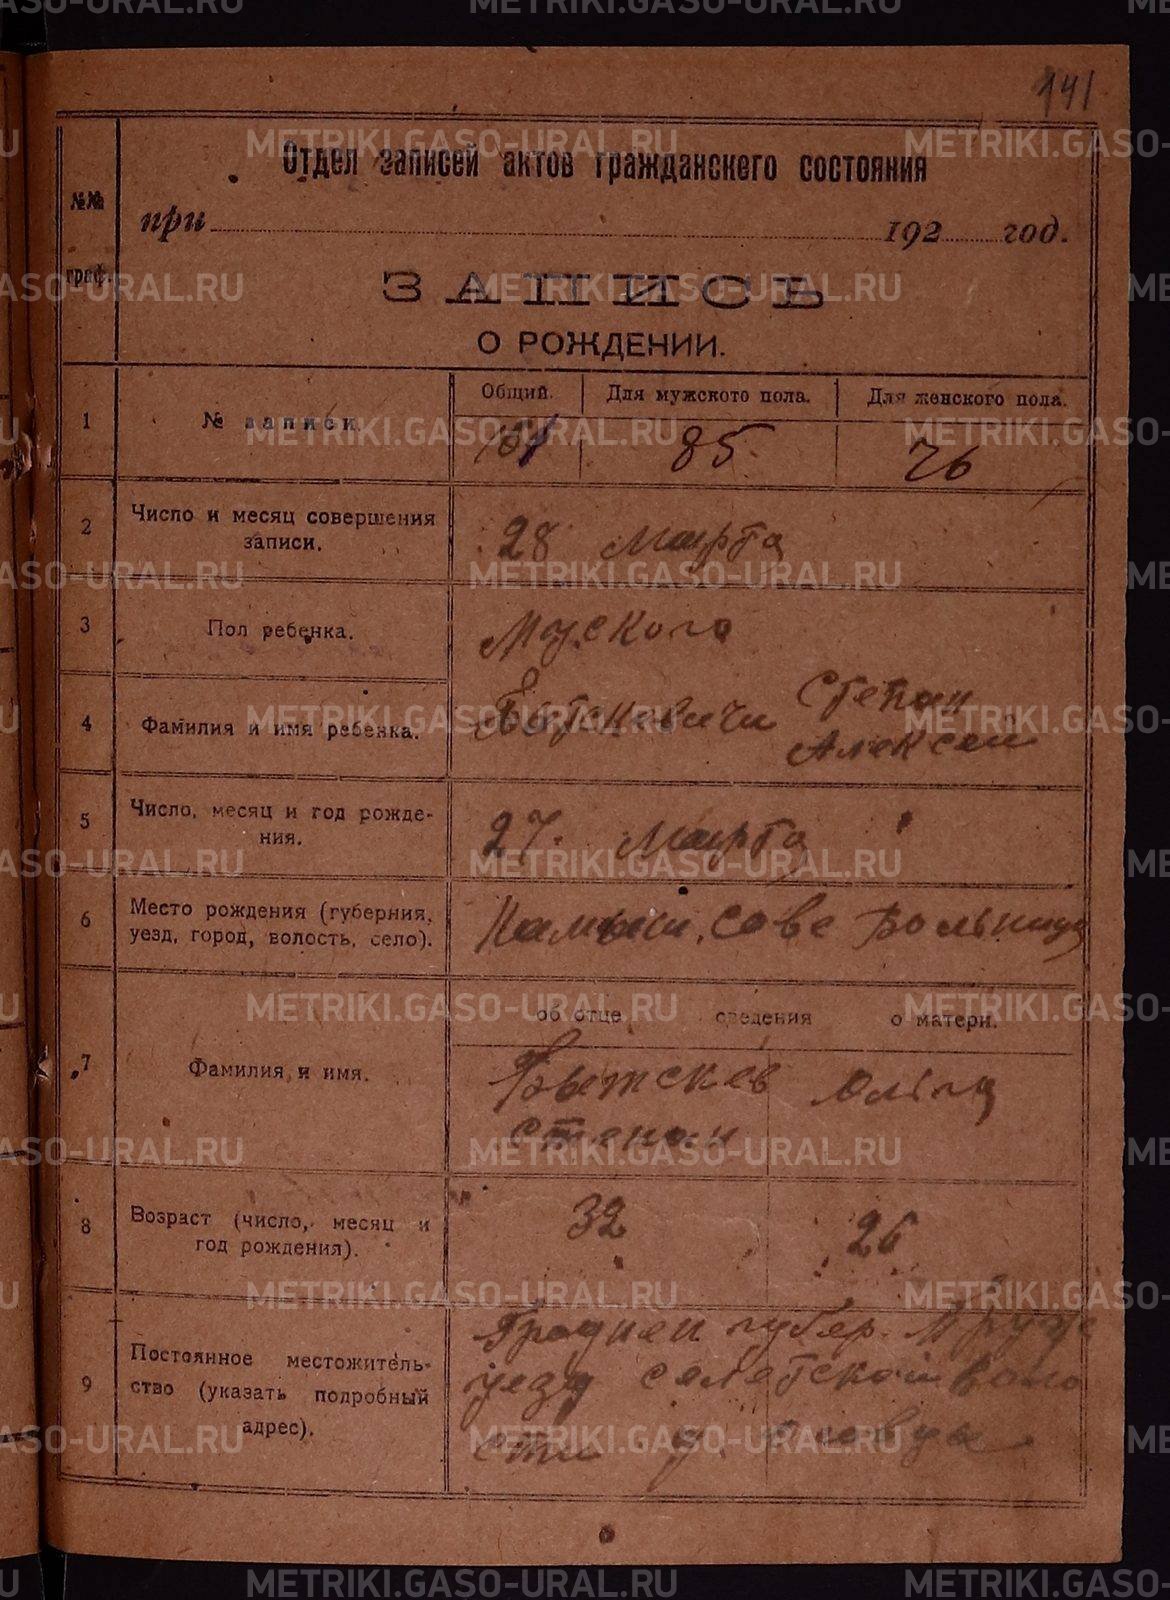 141
Отдел записей актов гражданского состояния
№№ граф.
при 192 год.
ЗАПИСЬ
О РОЖДЕНИИ.
1 № записи. Общий. Для мужского пола. Для женского пола.
161 85 76
2 Число и месяц совершения записи. 28 Марта
3 Пол ребенка. Муского
4 Фамилия и имя ребенка. Степан
Алексей
5 Число, месяц и год рождения. 27. Марта
6 Место рождения (губерния, уезд, город, волость, село). Камыш. сове Больница
об отце сведения о матери.
7 Фамилия и имя. Ольга
степан
8 Возраст (число, месяц и год рождения). 32 26
9 Постоянное местожительство (указать подробный адрес). губер.
уезд волости
д.
METRIKI.GASO-URAL.RU